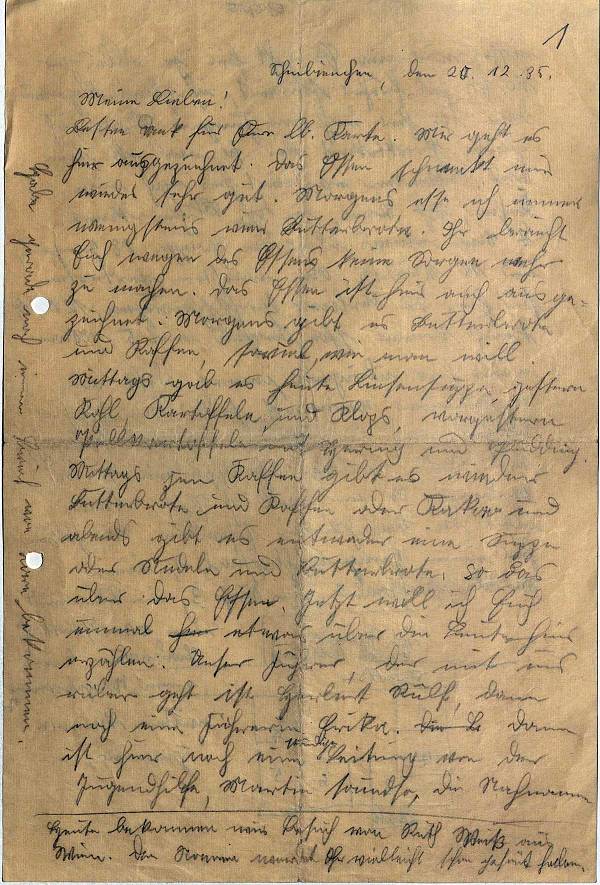 1
Schniebinchen, den 20. 12. 35.
Meine Lieben!
Besten Dank für Eure lb. Karte. Mir geht es
hier ausgezeichnet. Das Essen schmeckt mir
wieder sehr gut. Morgens esse ich immer
wenigstens vier Butterbrote. Ihr braucht
Euch wegen des Essens keine Sorgen mehr
zu machen. Das Essen ist hier auch ausge-
zeichnet. Morgens gibt es Butterbrote
und Kaffee, soviel, wie man will.
Mittags gab es heute Linsensuppe, gestern
Kohl, Kartoffeln, und Klops, vorgestern
Pellkartoffeln mit Hering und Pudding.
Mittags zum Kaffee gibt es wieder
Butterbrote und Kaffee oder Kakao und
abends gibt es entweder eine Suppe
oder Nudeln und Butterbrote. So das
über das Essen. Jetzt will ich Euch
einmal etwas über die Leute hier
erzählen. Unser Führer, der mit uns
rüber geht ist Herbert Külf, dann
noch eine Führerin Erika. Dann
ist hier noch eine Leitung von der
Jugendhilfe, Martin soundso, die Nachnamen
Heute bekommen wir Besuch von Ruth Weiß aus
Wien. Den Namen werdet Ihr vielleicht schon gehört haben.
Habe gerade noch einen Brief von bekommen.